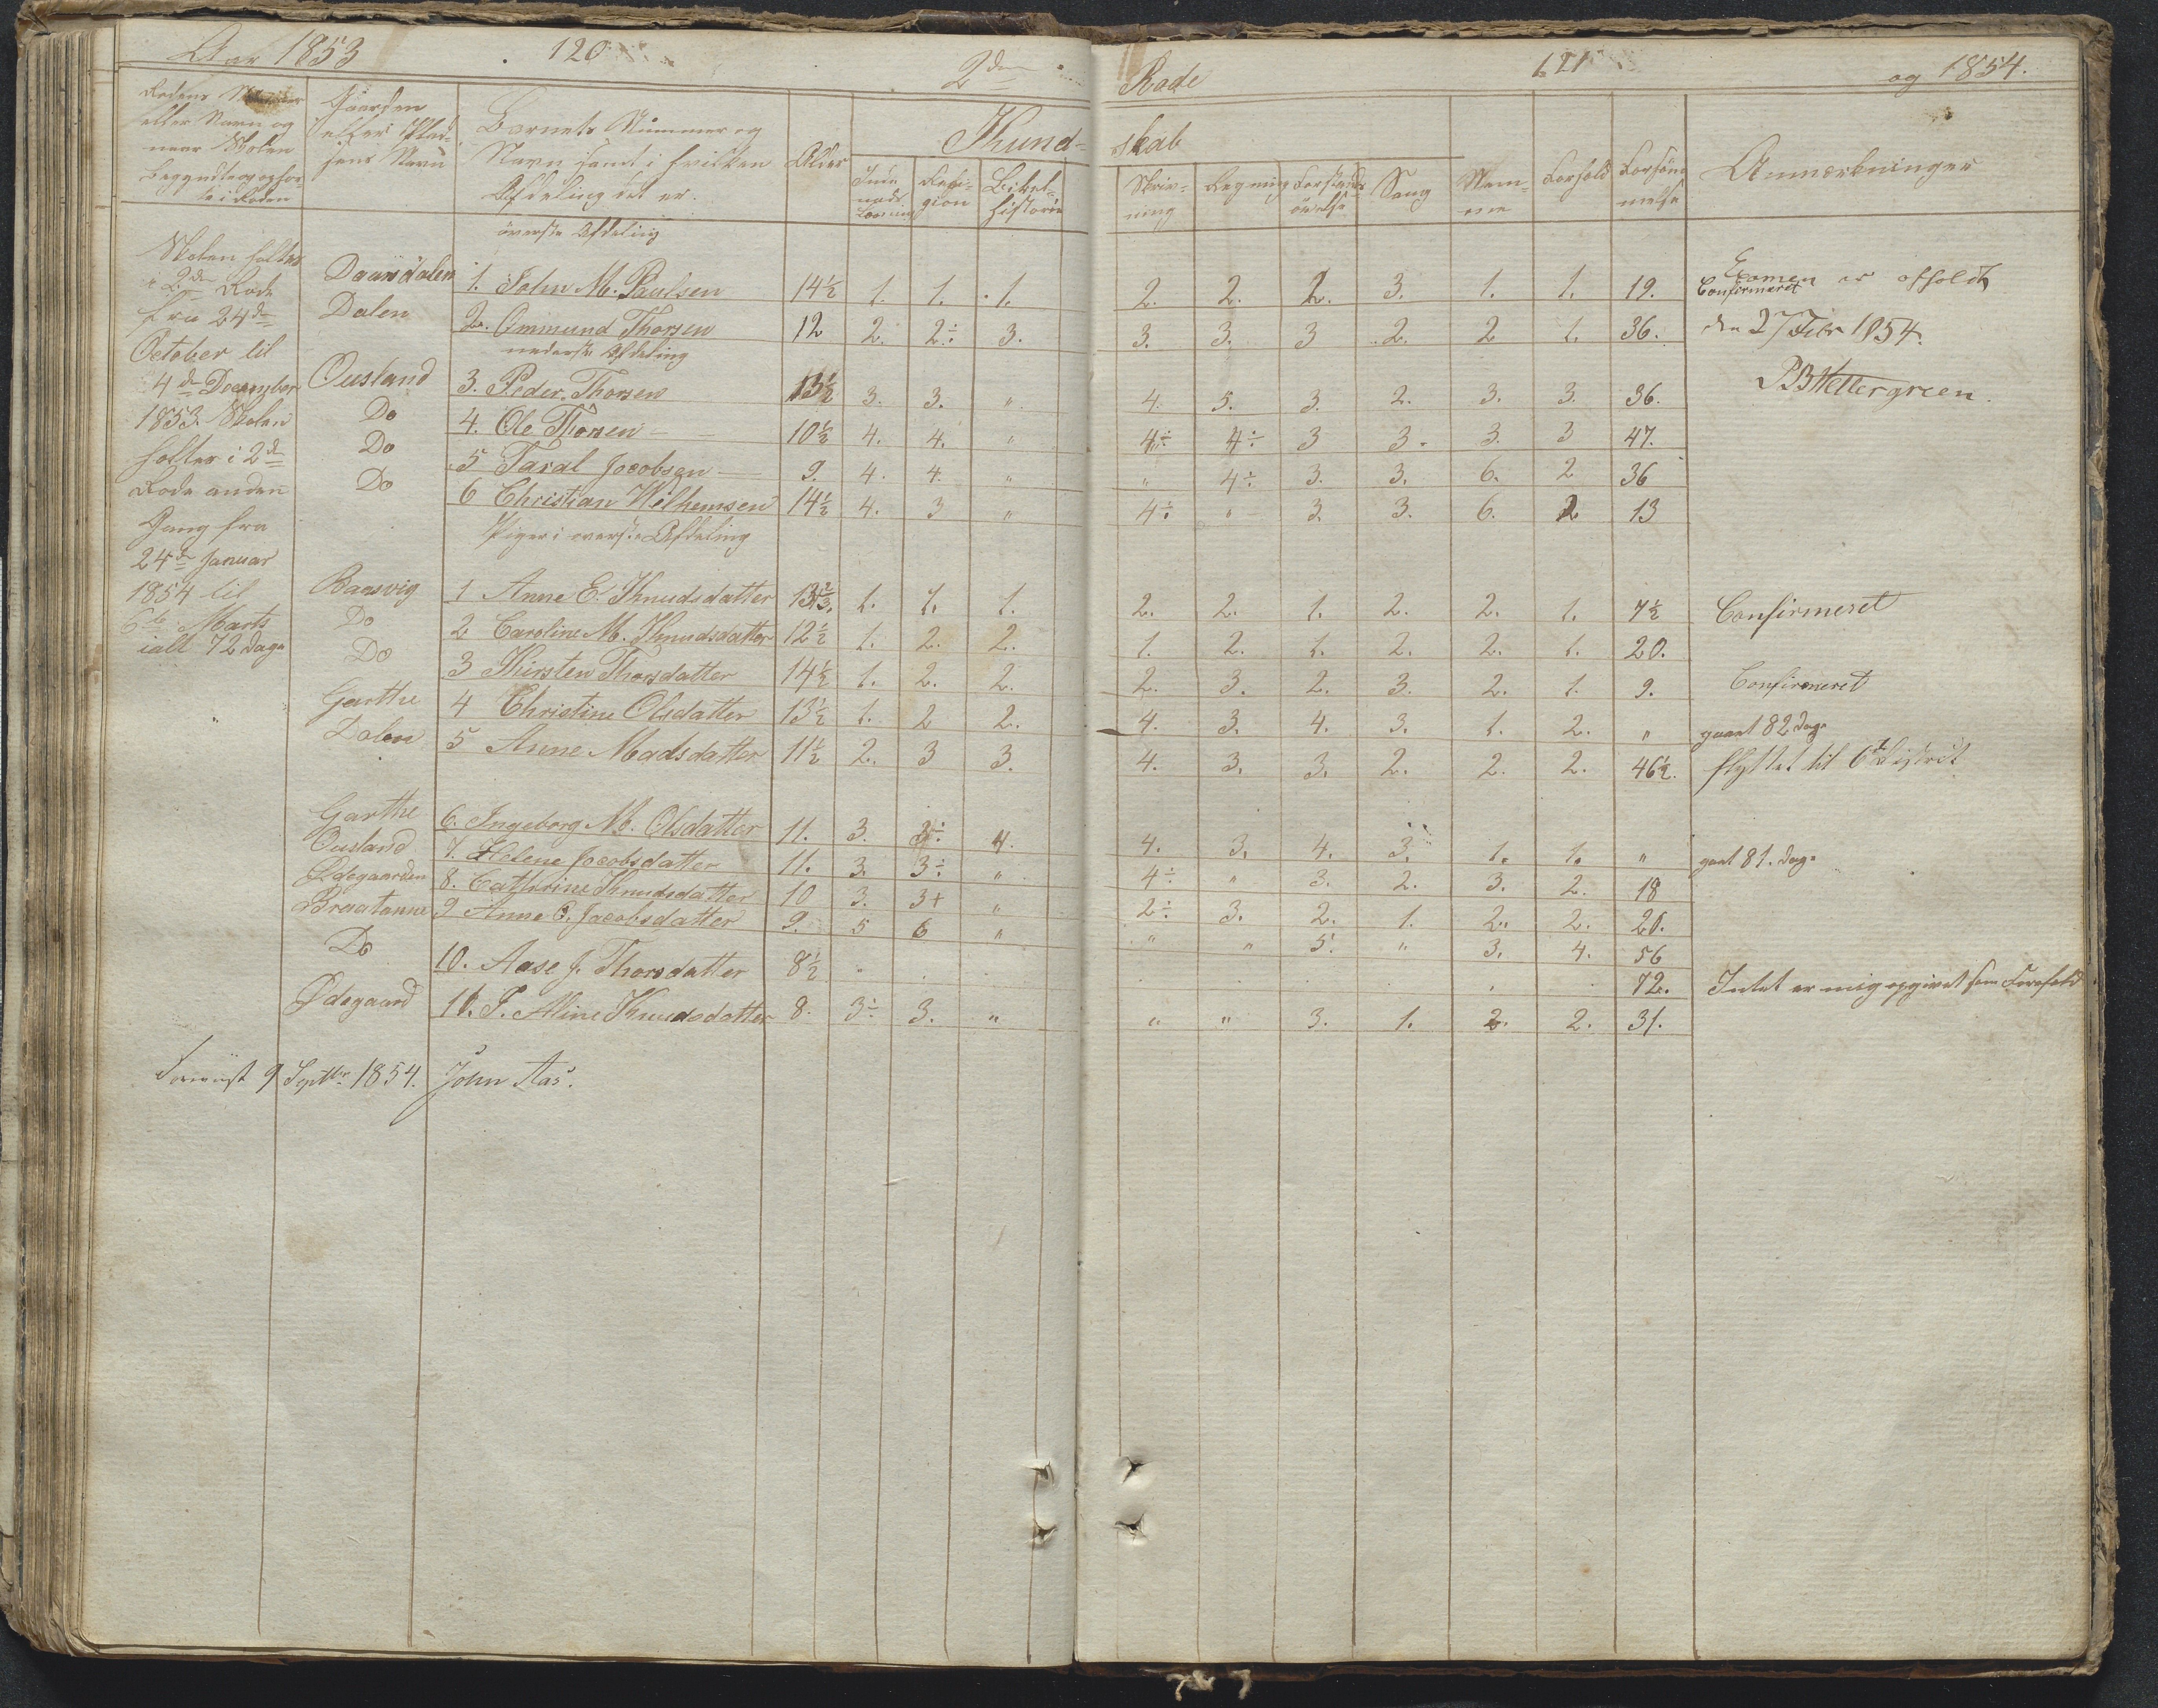 Aar 1853 120 2den Rode 121 og 1854.
Rodens Nummer eller Navn og naar Skolen begyndte og ophørte i Roden
Gaarden eller Pladsens Navn
Barnets Nummer og Navn samt i hvilken Afdeling det er.
Alder
Kundskab
Indenadslæsning
Religion
Bibelhistorie
Skrivning
Regning
Forstandsövelse
Sang
Nemme
Forhold
Forsömmelse
Anmærkninger
Skolen holdtes
i 2den Rode
fra 24de
October til
4de December
1853. Skolen
holdtes i 2den
Rode anden
Gang fra
24de Januar
1854 til
6te Marts
ialt 72 Dage
överste Afdeling
Daarsdalen 1. John M. Paulsen 14½ 1. 1. 1. 2. 2. 2. 3. 1. 1. 19. Confirmeret
Examen er afholdt
Dalen 2. Ommund Thorsen 12 2. 2÷ 3. 3. 3. 3 2. 2 1. 36. den 27 Febr 1854.
nederste Afdeling
Ousland 3. Peder Thorsen 13½ 3. 3. " 4. 5. 3. 2. 3. 3. 36. P B Wettergreen.
Do 4. Ole Thorsen 10½ 4. 4. " 4÷ 4÷ 3 3. 3. 3 47.
Do 5 Taral Jocobsen 9. 4. 4. " " 4÷ 3. 3. 6. 2 36
Do 6 Christian Wilhemsen 14½ 4. 3 " 4÷ " 3. 3. 6. 2 13
Piger i överste Afdeling
Raasvig 1 Anne E. Knudsdatter 13⅔. 1. 1. 1. 2. 2. 1. 2. 2. 1. 7½ Confirmeret
Do 2 Caroline M. Knudsdatter 12½ 1. 2. 2. 1. 2. 1. 2. 2. 1. 20.
Do 3 Kirsten Thorsdatter 14½ 1. 2. 2. 2. 3. 2. 3. 2. 1. 9. Confirmeret
Garthe 4 Christine Olsdatter 13½ 1. 2 2. 4. 3. 4. 3. 1. 2. " gaaet 82 Dage
Dalen 5 Anne Madsdatter 11½ 2. 3 3. 4. 3. 3. 2. 2. 2. 46½. flyttet til 6te District
Garthe 6. Ingeborg M. Olsdatter 11. 3. 3÷ 4. 4. 3. 4. 3. 1. 1. " gaaet 81. Dage
Ousland 7. Helene Jocobsdatter 11. 3. 3÷ " 4÷ " 3. 2. 3. 2. 18
Ødegaarden 8. Cathrine Knudsdatter 10 3. 3+ " 2÷ 3. 2. 1. 2. 2. 20.
Braatanne 9 Anne C. Jacobsdatter 9. 5 6 " " " 5. " 3. 4. 56
Do 10. Aase J. Thorsdatter 8½ 72. Intet er mig opgivet som Forefald
Ødegaard 11. T. Aline Knudsdatter 8. 3÷ 3. " " " 3. 1. 2. 2. 31.
Foreviist 9 Septbr 1854. John Aas.